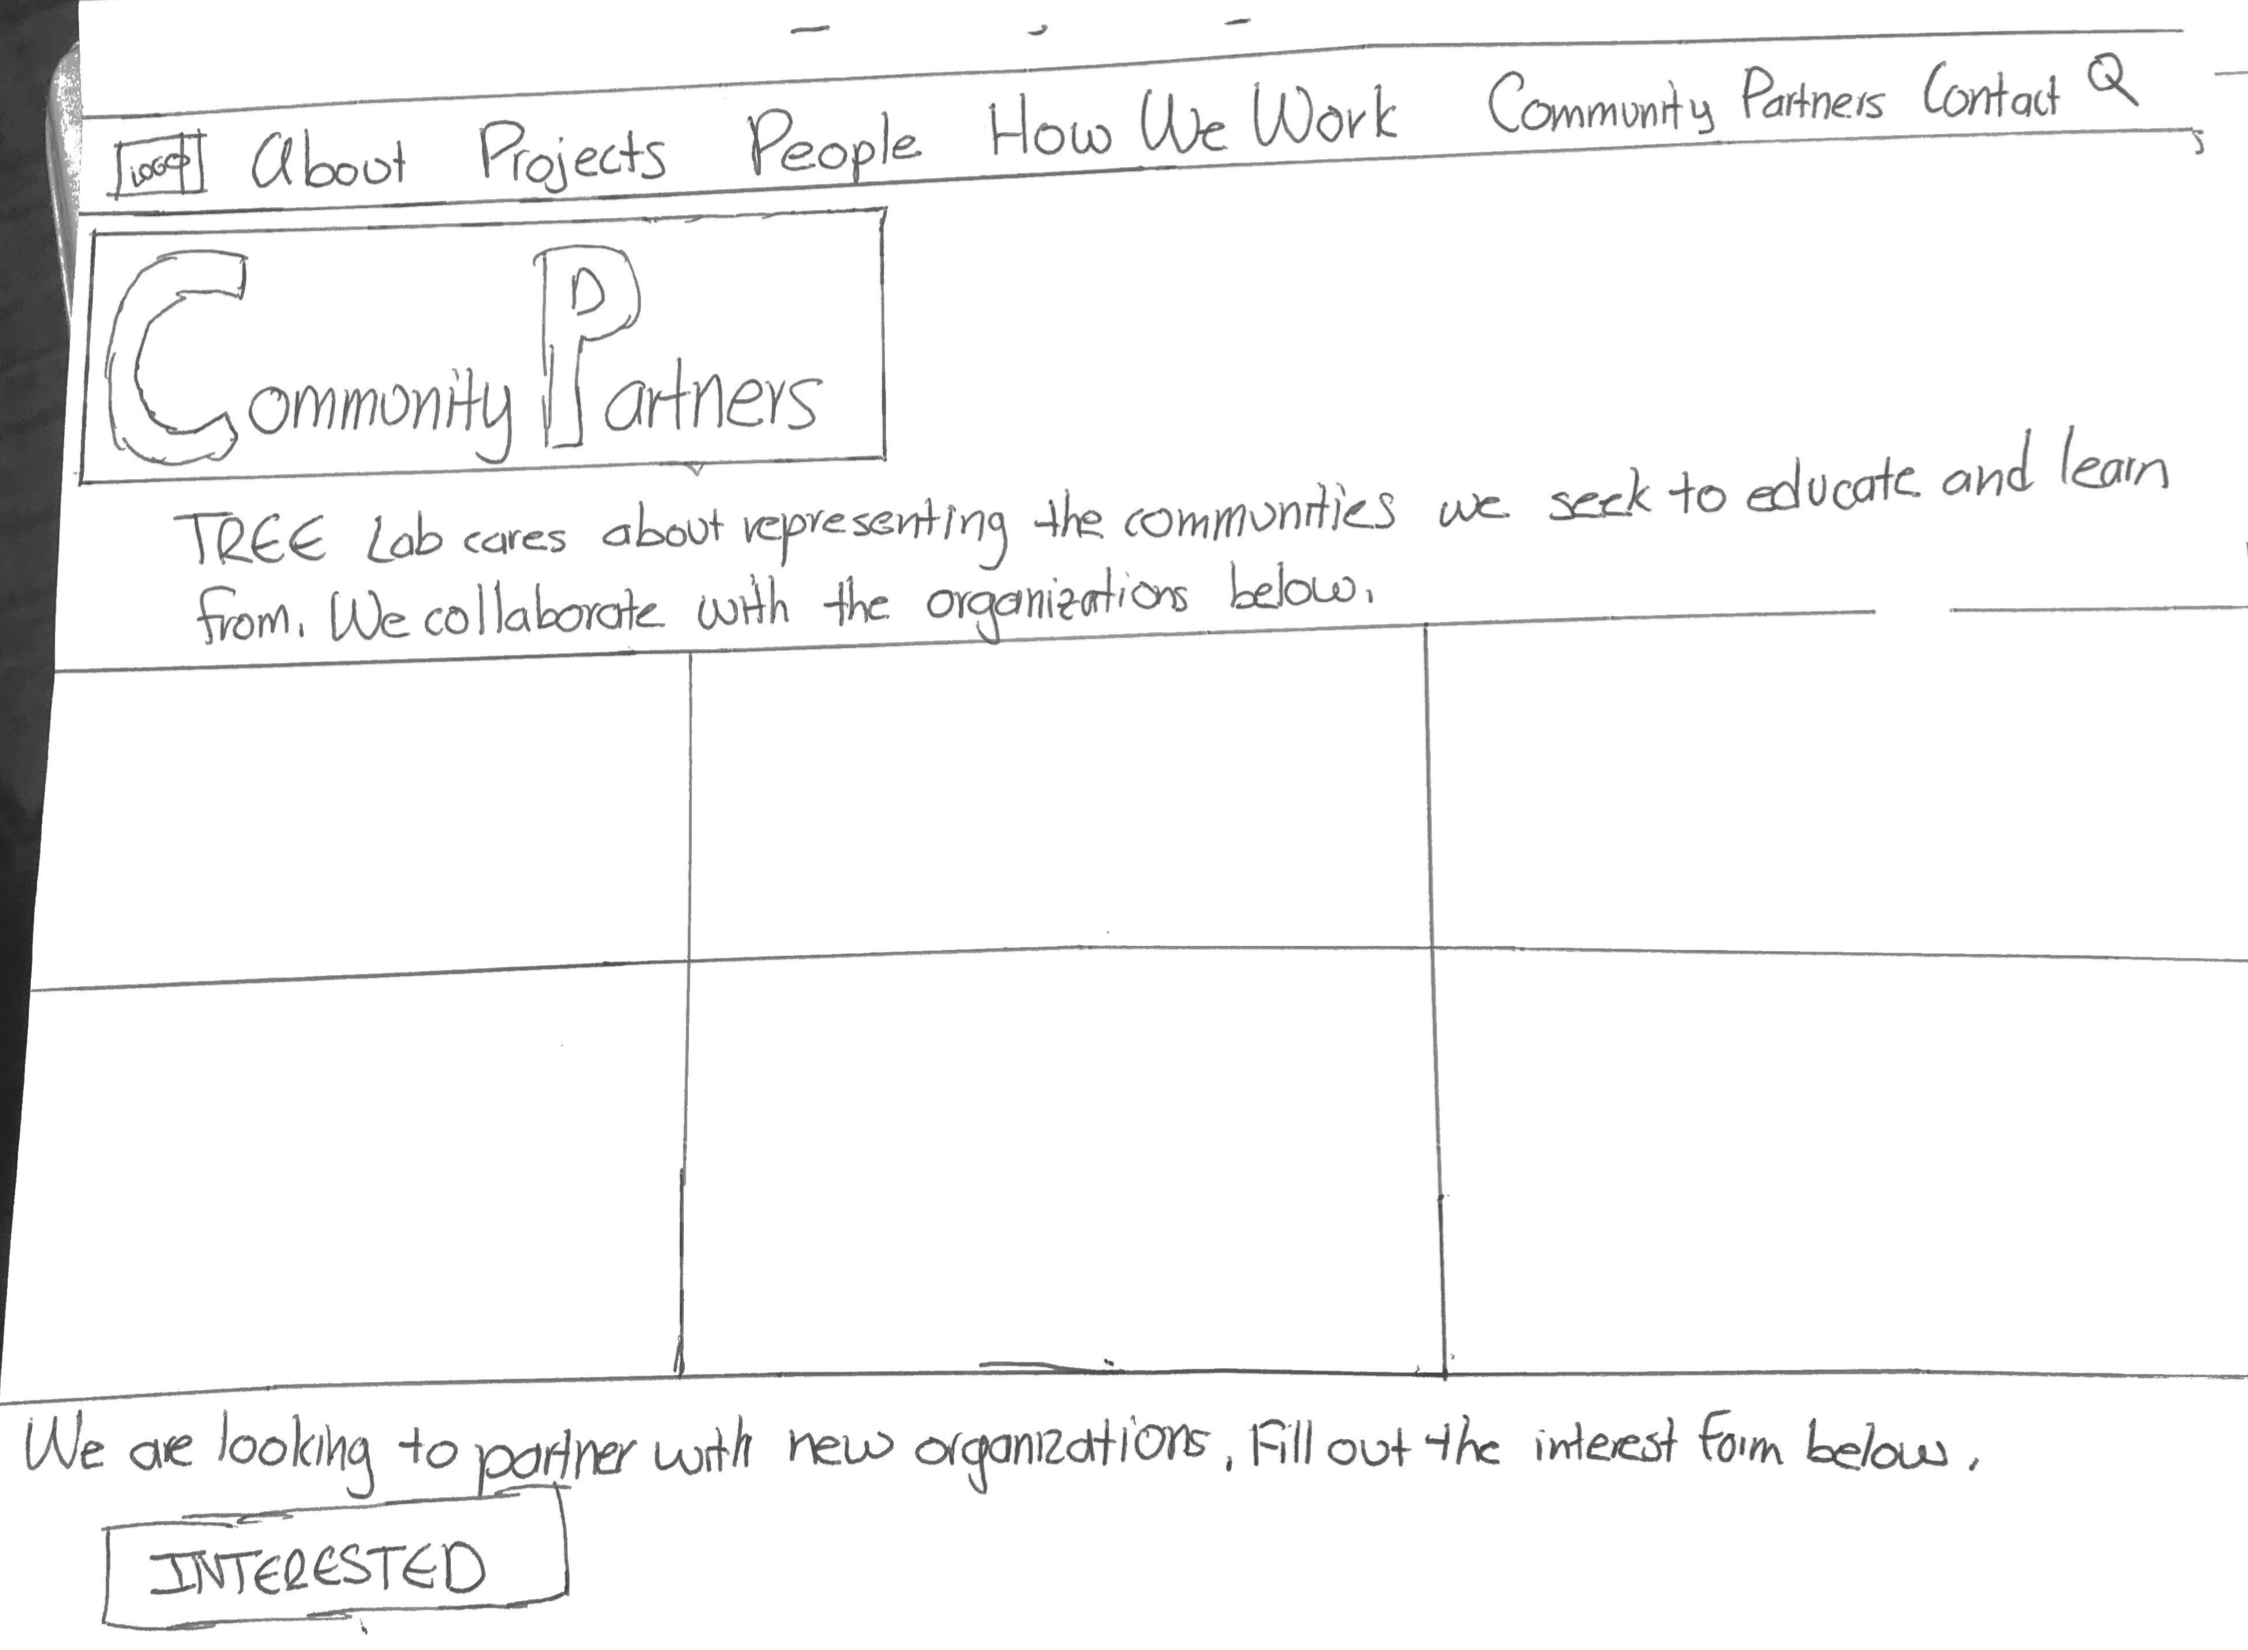 LOGO About Projects People How We Work Community Partners Contact
Community Partners
TREE Lab cares about representing the communities we seek to educate and learn
from. We collaborate with the organizations below.
We are looking to partner with new organizations. Fill out the interest form below.
INTERESTED